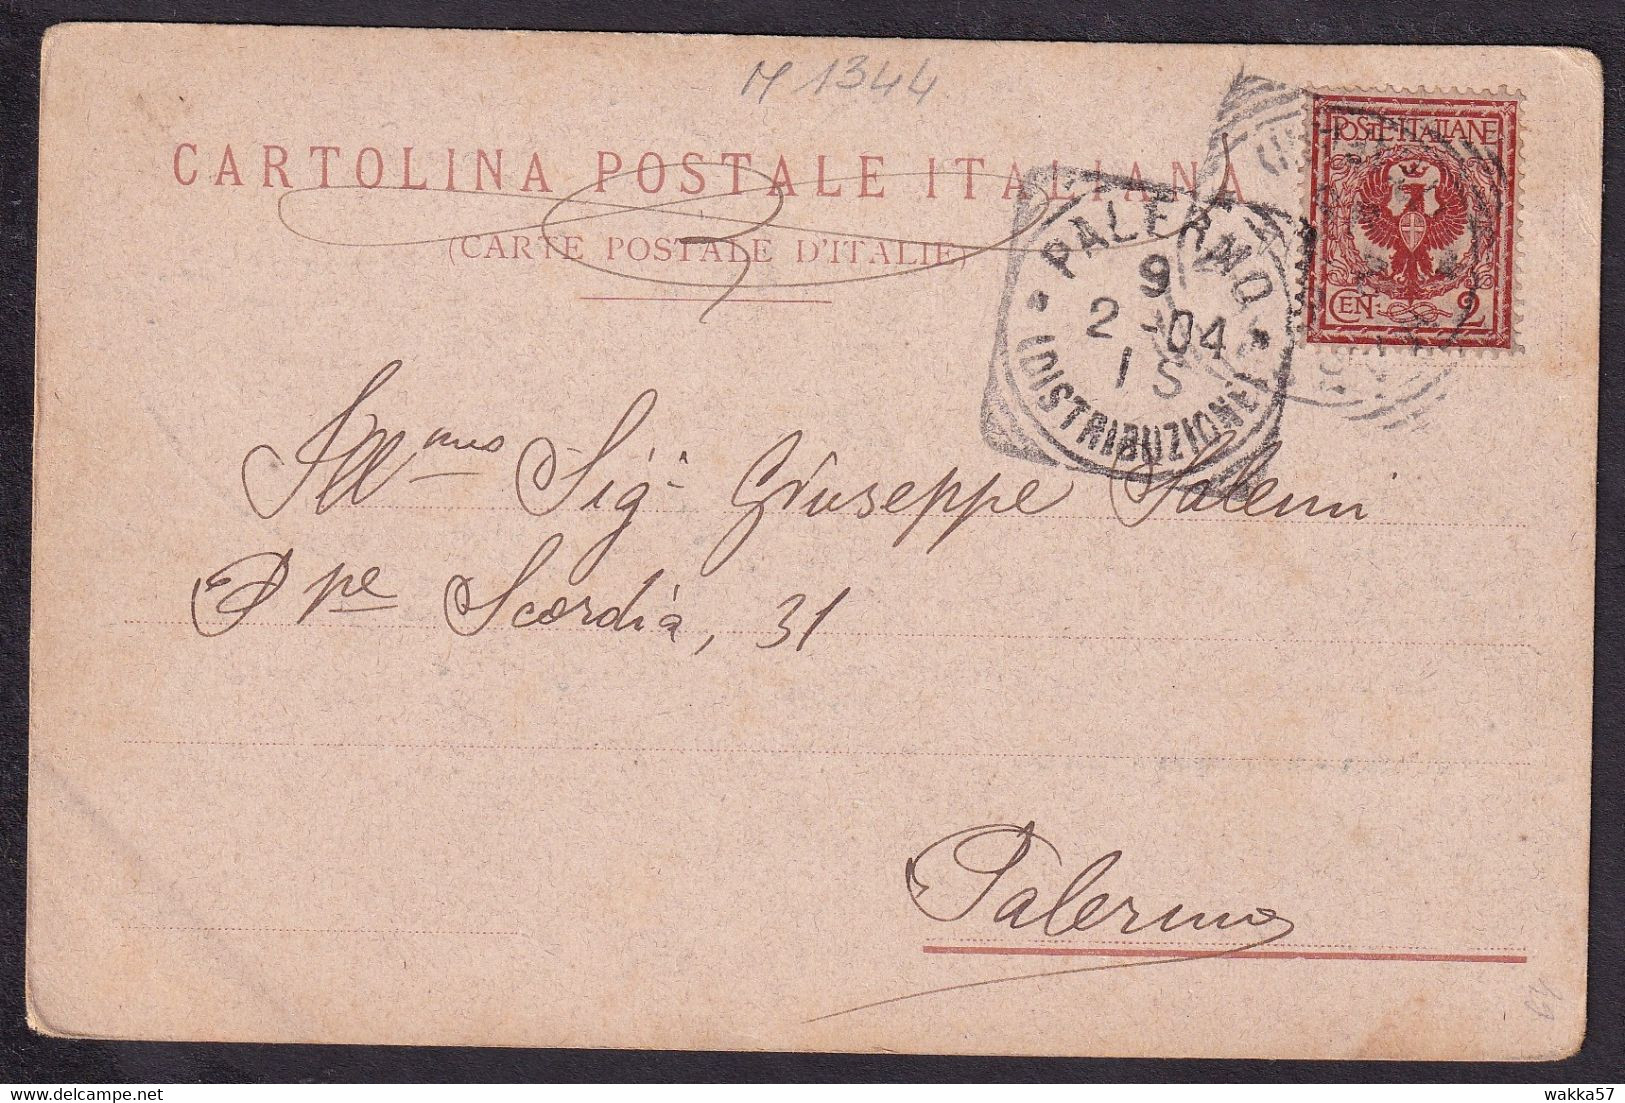 M 1344
CARTOLINA POSTALE ITALIANA
(CARTE POSTALE D'ITALIE)
POSTE·ITALIANE
CEN. 2
PALERMO
9
2 - 04
1 S
(DISTRIBUZIONE)
Ill.mo Sig.r Giuseppe Salemi
Ppe Scordia, 31
Palermo
wakka57